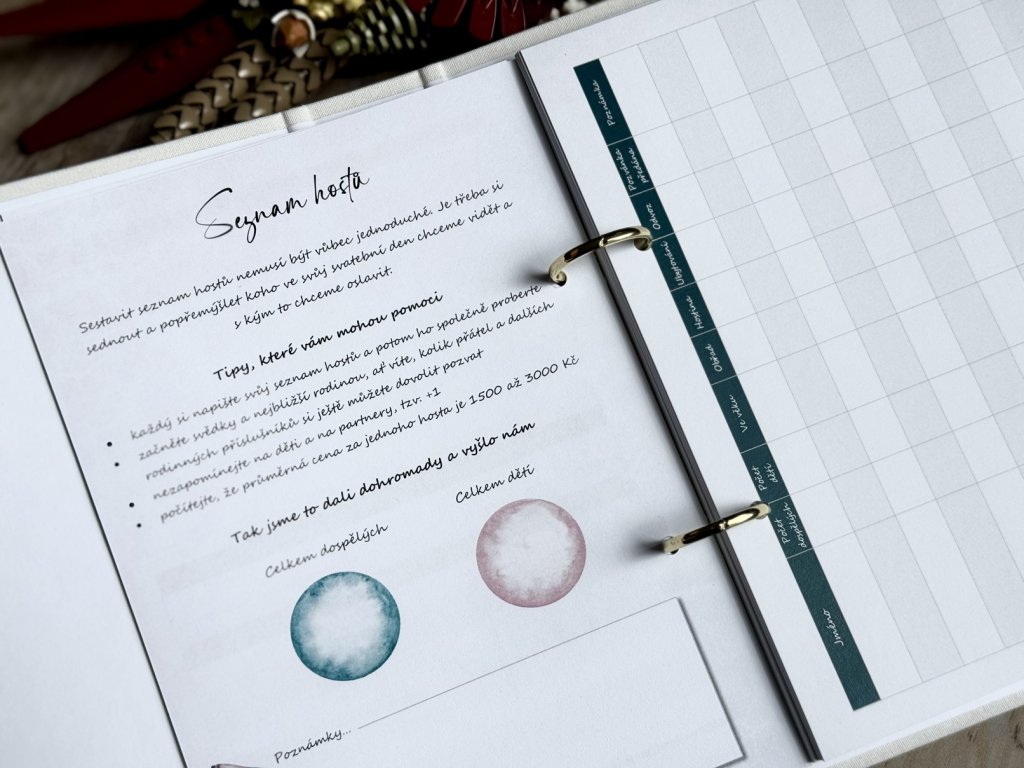 Seznam hostů
Sestavit seznam hostů nemusí být vůbec jednoduché. Je třeba si
sednout a popřemýšlet koho ve svůj svatební den chceme vidět a
s kým to chceme oslavit.
Tipy, které vám mohou pomoci
každý si napište svůj seznam hostů a potom ho společně proberte
začněte svědky a nejbližší rodinou, ať víte, kolik přátel a dalších
rodinných příslušníků si ještě můžete dovolit pozvat
nezapomínejte na děti a na partnery, tzv. +1
počítejte, že průměrná cena za jednoho hosta je 1500 až 3000 Kč
Tak jsme to dali dohromady a vyšlo nám
Celkem dospělých
Celkem dětí
Poznámky...
Jméno
Počet
dospělých
Počet
dětí
Ve věku
Obřad
Hostina
Ubytování
Odvoz
Pozvánka
předána
Poznámka